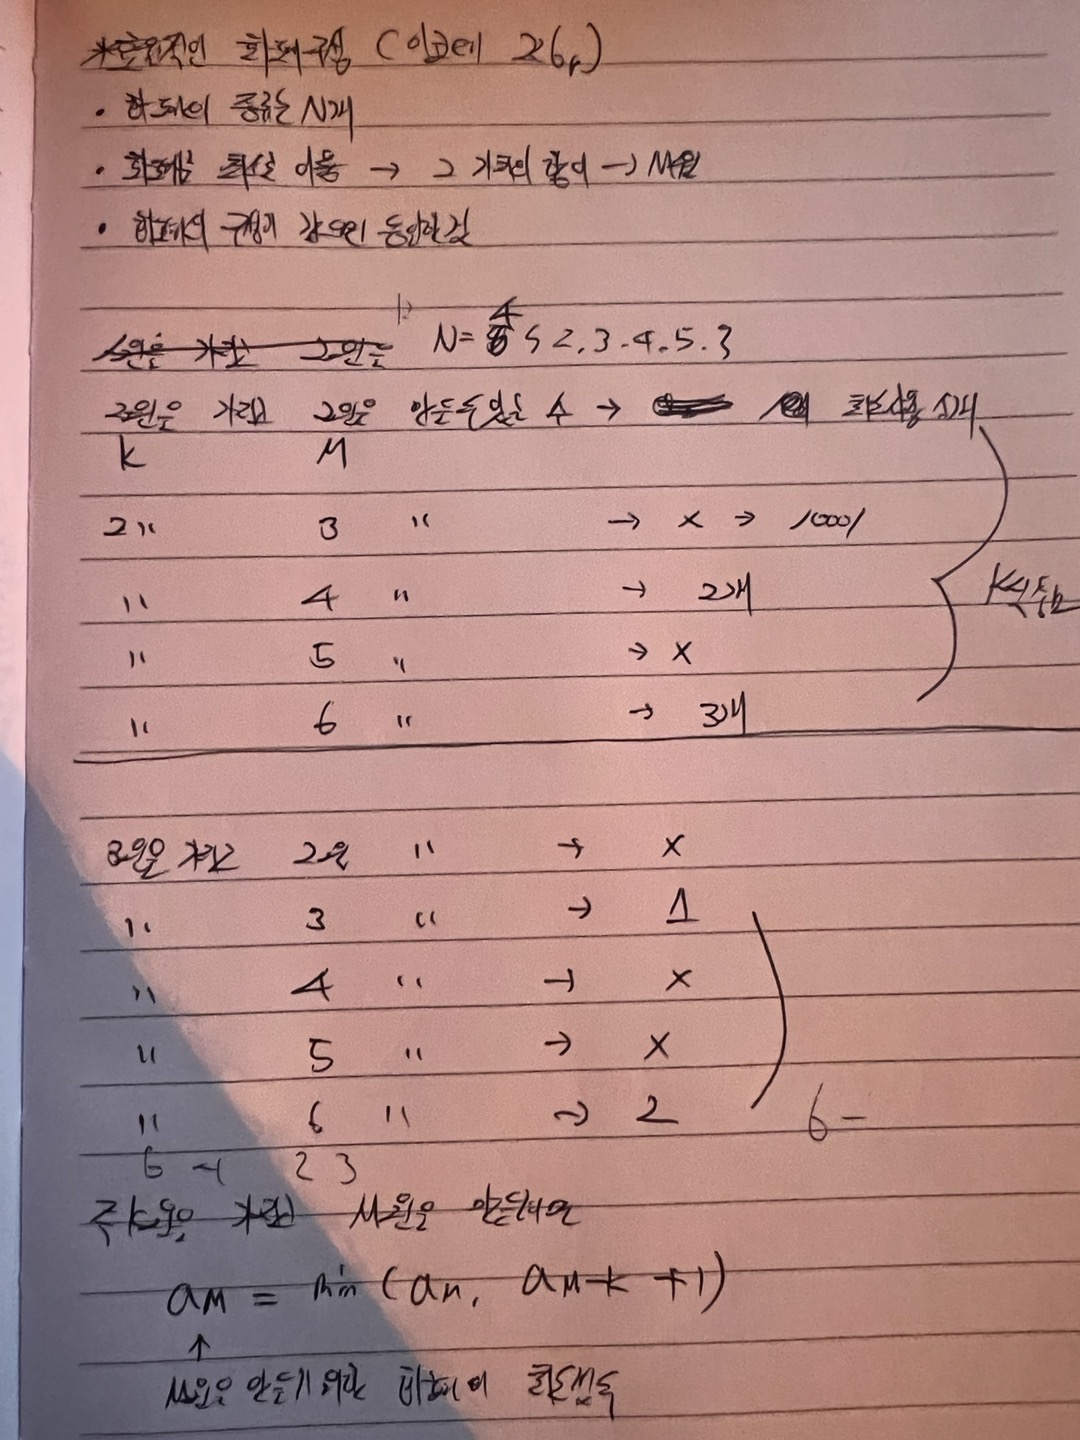 *효율적인 화폐구성 (이코테 226p)
• 화폐의 종류는 N개
• 화폐를 최소 이용 → 그 가치의 합이 → M원
• 화폐의 구성이 같으면 동일한 것
N= 4 { 2. 3. 4. 5. }
2원을 가지고 2원을 만들수있는 수 → 최소사용 1개
K M
2 〃 3 〃 → X → 10001
〃 4 〃 → 2개
〃 5 〃 → X
〃 6 〃 → 3개
3원을 가지고 2원 〃 → X
〃 3 〃 → 1
〃 4 〃 → X
〃 5 〃 → X
〃 6 〃 → 2
6 -
6 2 3
즉 K원을 가지고 M원을 만든다면
aM = min (aM, aM-K +1)
↑
M원을 만들기 위한 화폐의